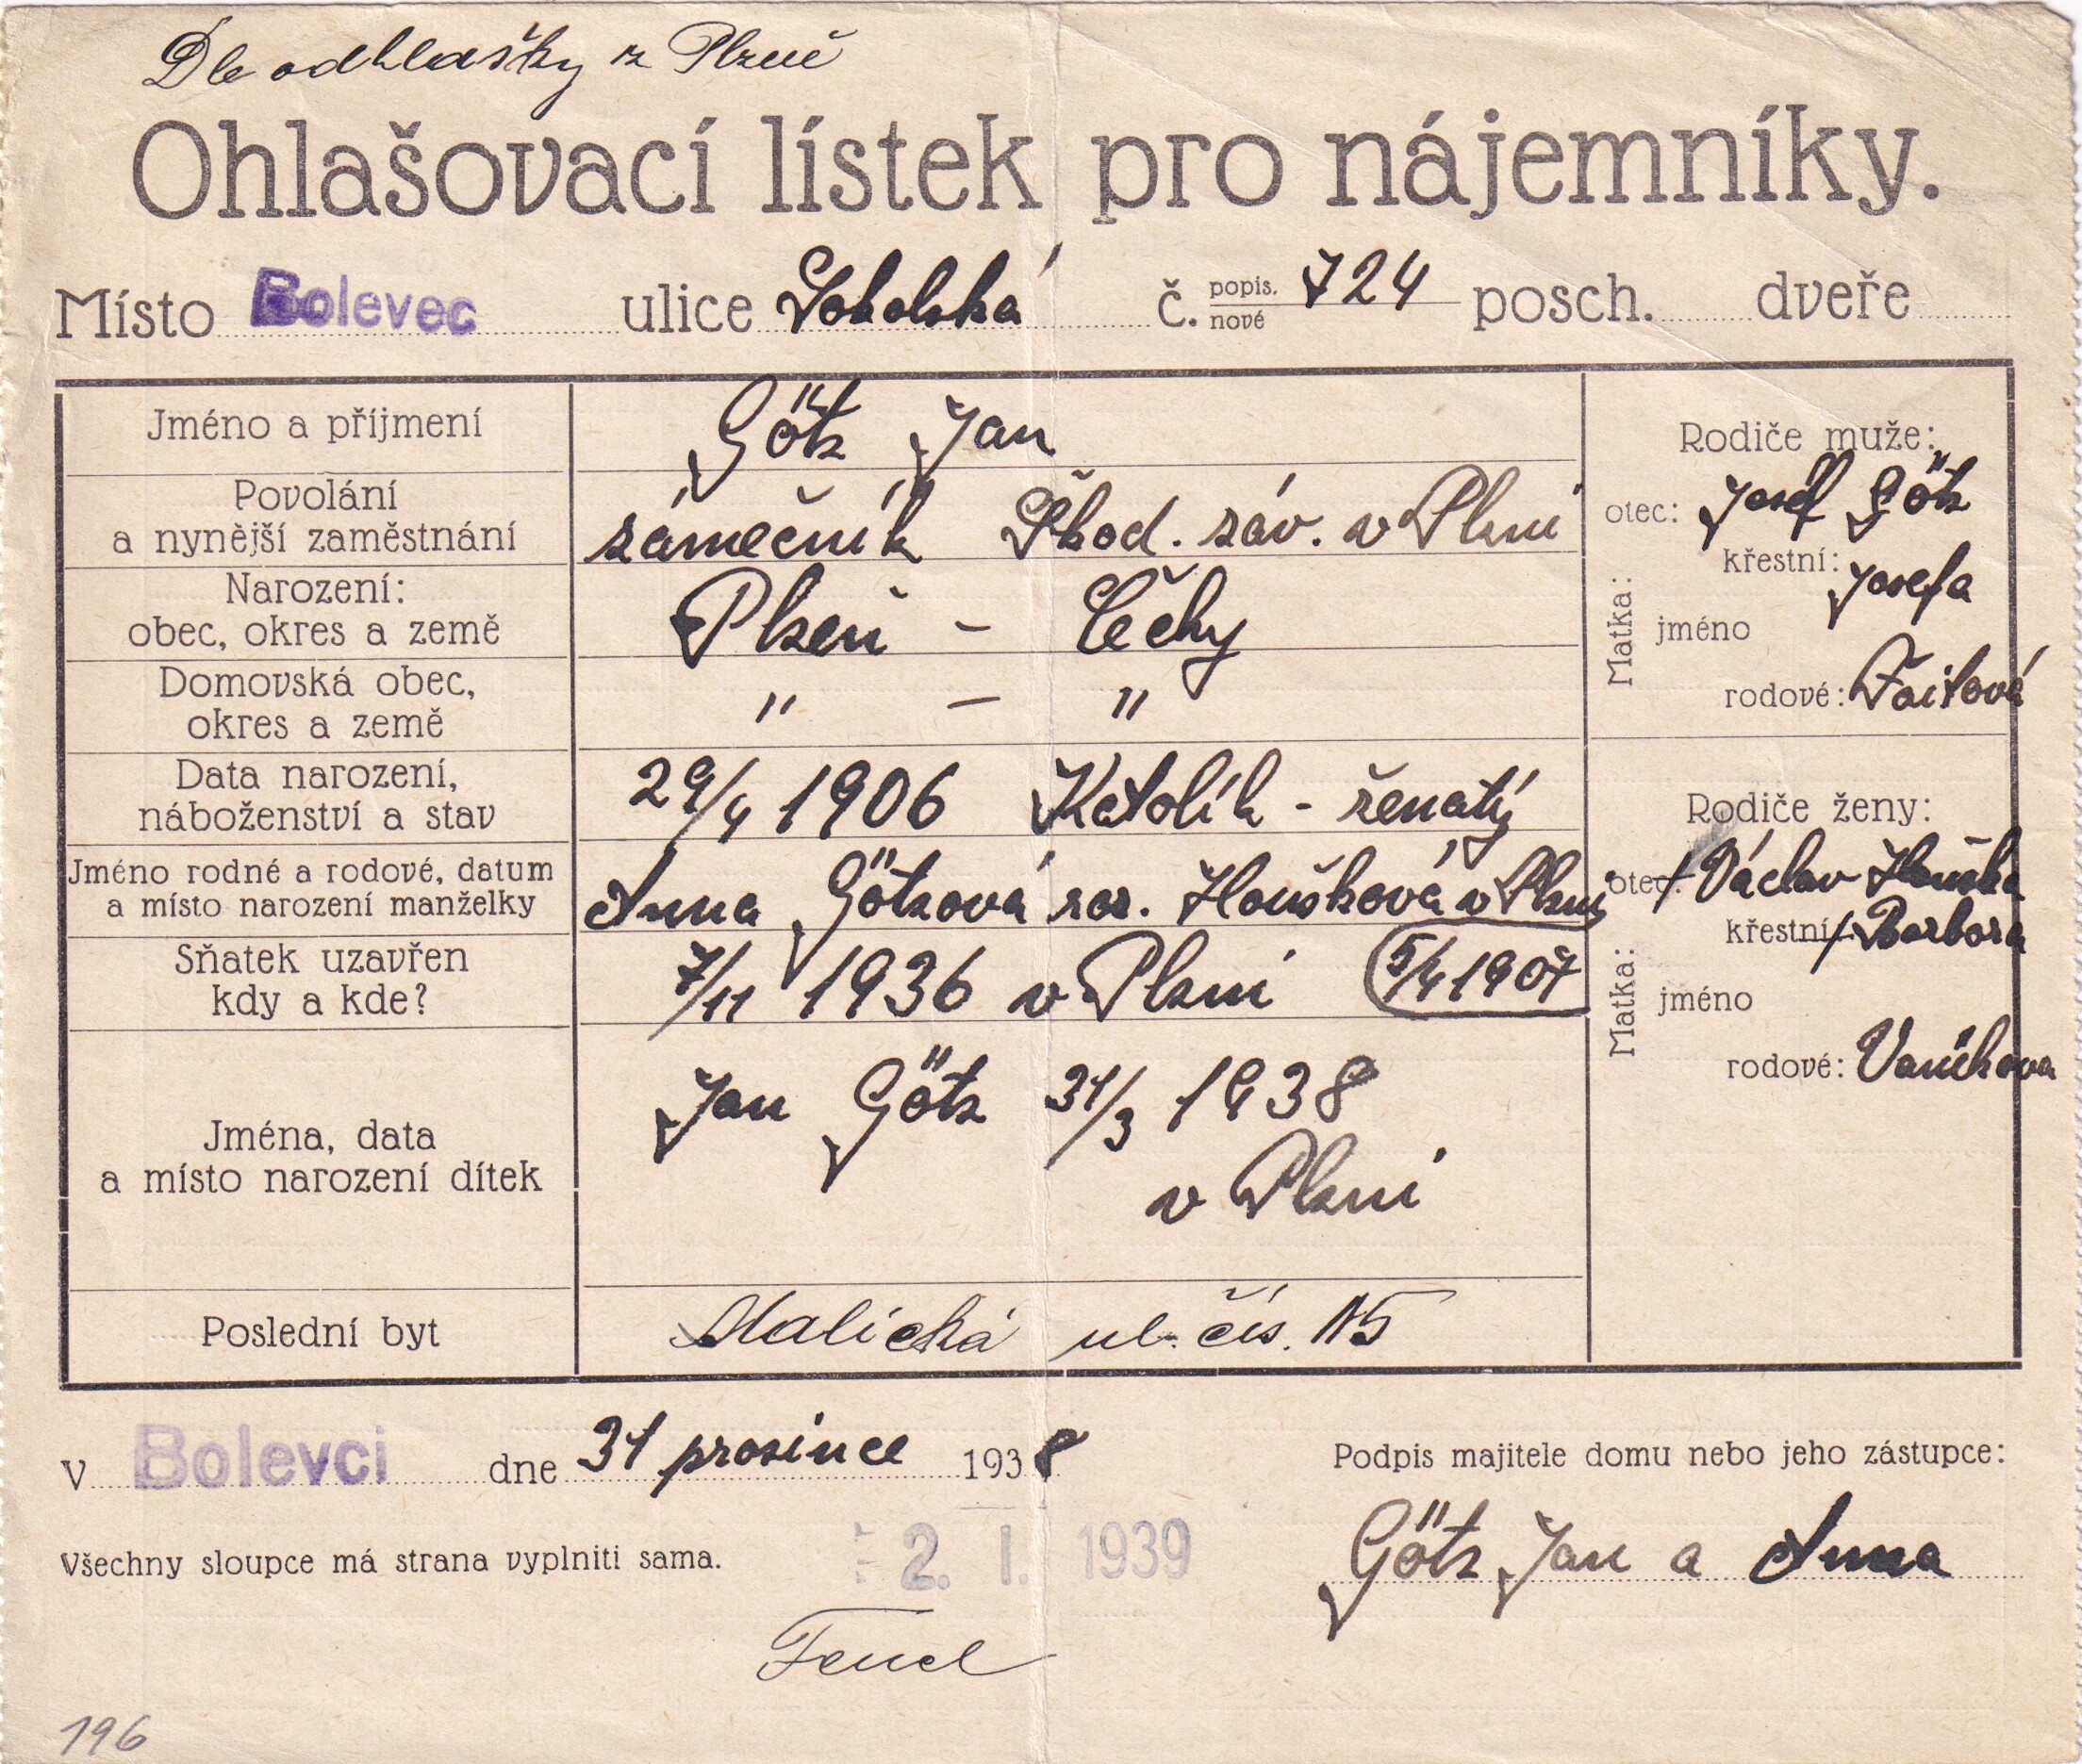 Dle odhlašky z Plzně
Ohlašovací lístek pro nájemníky.
Místo Bolevec ulice Sokolská č. popis. nové 724 posch. dveře
Jméno a příjmení Götz Jan
Povolání
a nynější zaměstnání zámečník Škod. záv. v Plzni
Narození:
obec, okres a země Plzeň - Čechy
Domovská obec,
okres a země " - "
Data narození,
náboženství a stav 29/4 1906 Katolík - ženatý
Jméno rodné a rodové, datum
a místo narození manželky Anna Götzová roz. Houšková v Plzni
Sňatek uzavřen
kdy a kde? 7/11 1936 v Plzni 5/4 1907
Jména, data
a místo narození dítek Jan Götz 31/3 1938
v Plzni
Poslední byt Malická ul. čís. 15
Rodiče muže:
otec: Josef Götz
Matka:
křestní: Josefa
jméno
rodové: Faitová
Rodiče ženy:
otec: Václav Houška
Matka:
křestní: Barbora
jméno
rodové: Vaníkova
V Bolevci dne 31 prosince 1938
Podpis majitele domu nebo jeho zástupce:
Götz Jan a Anna
Všechny sloupce má strana vyplniti sama.
2. I. 1939
Fencl
196